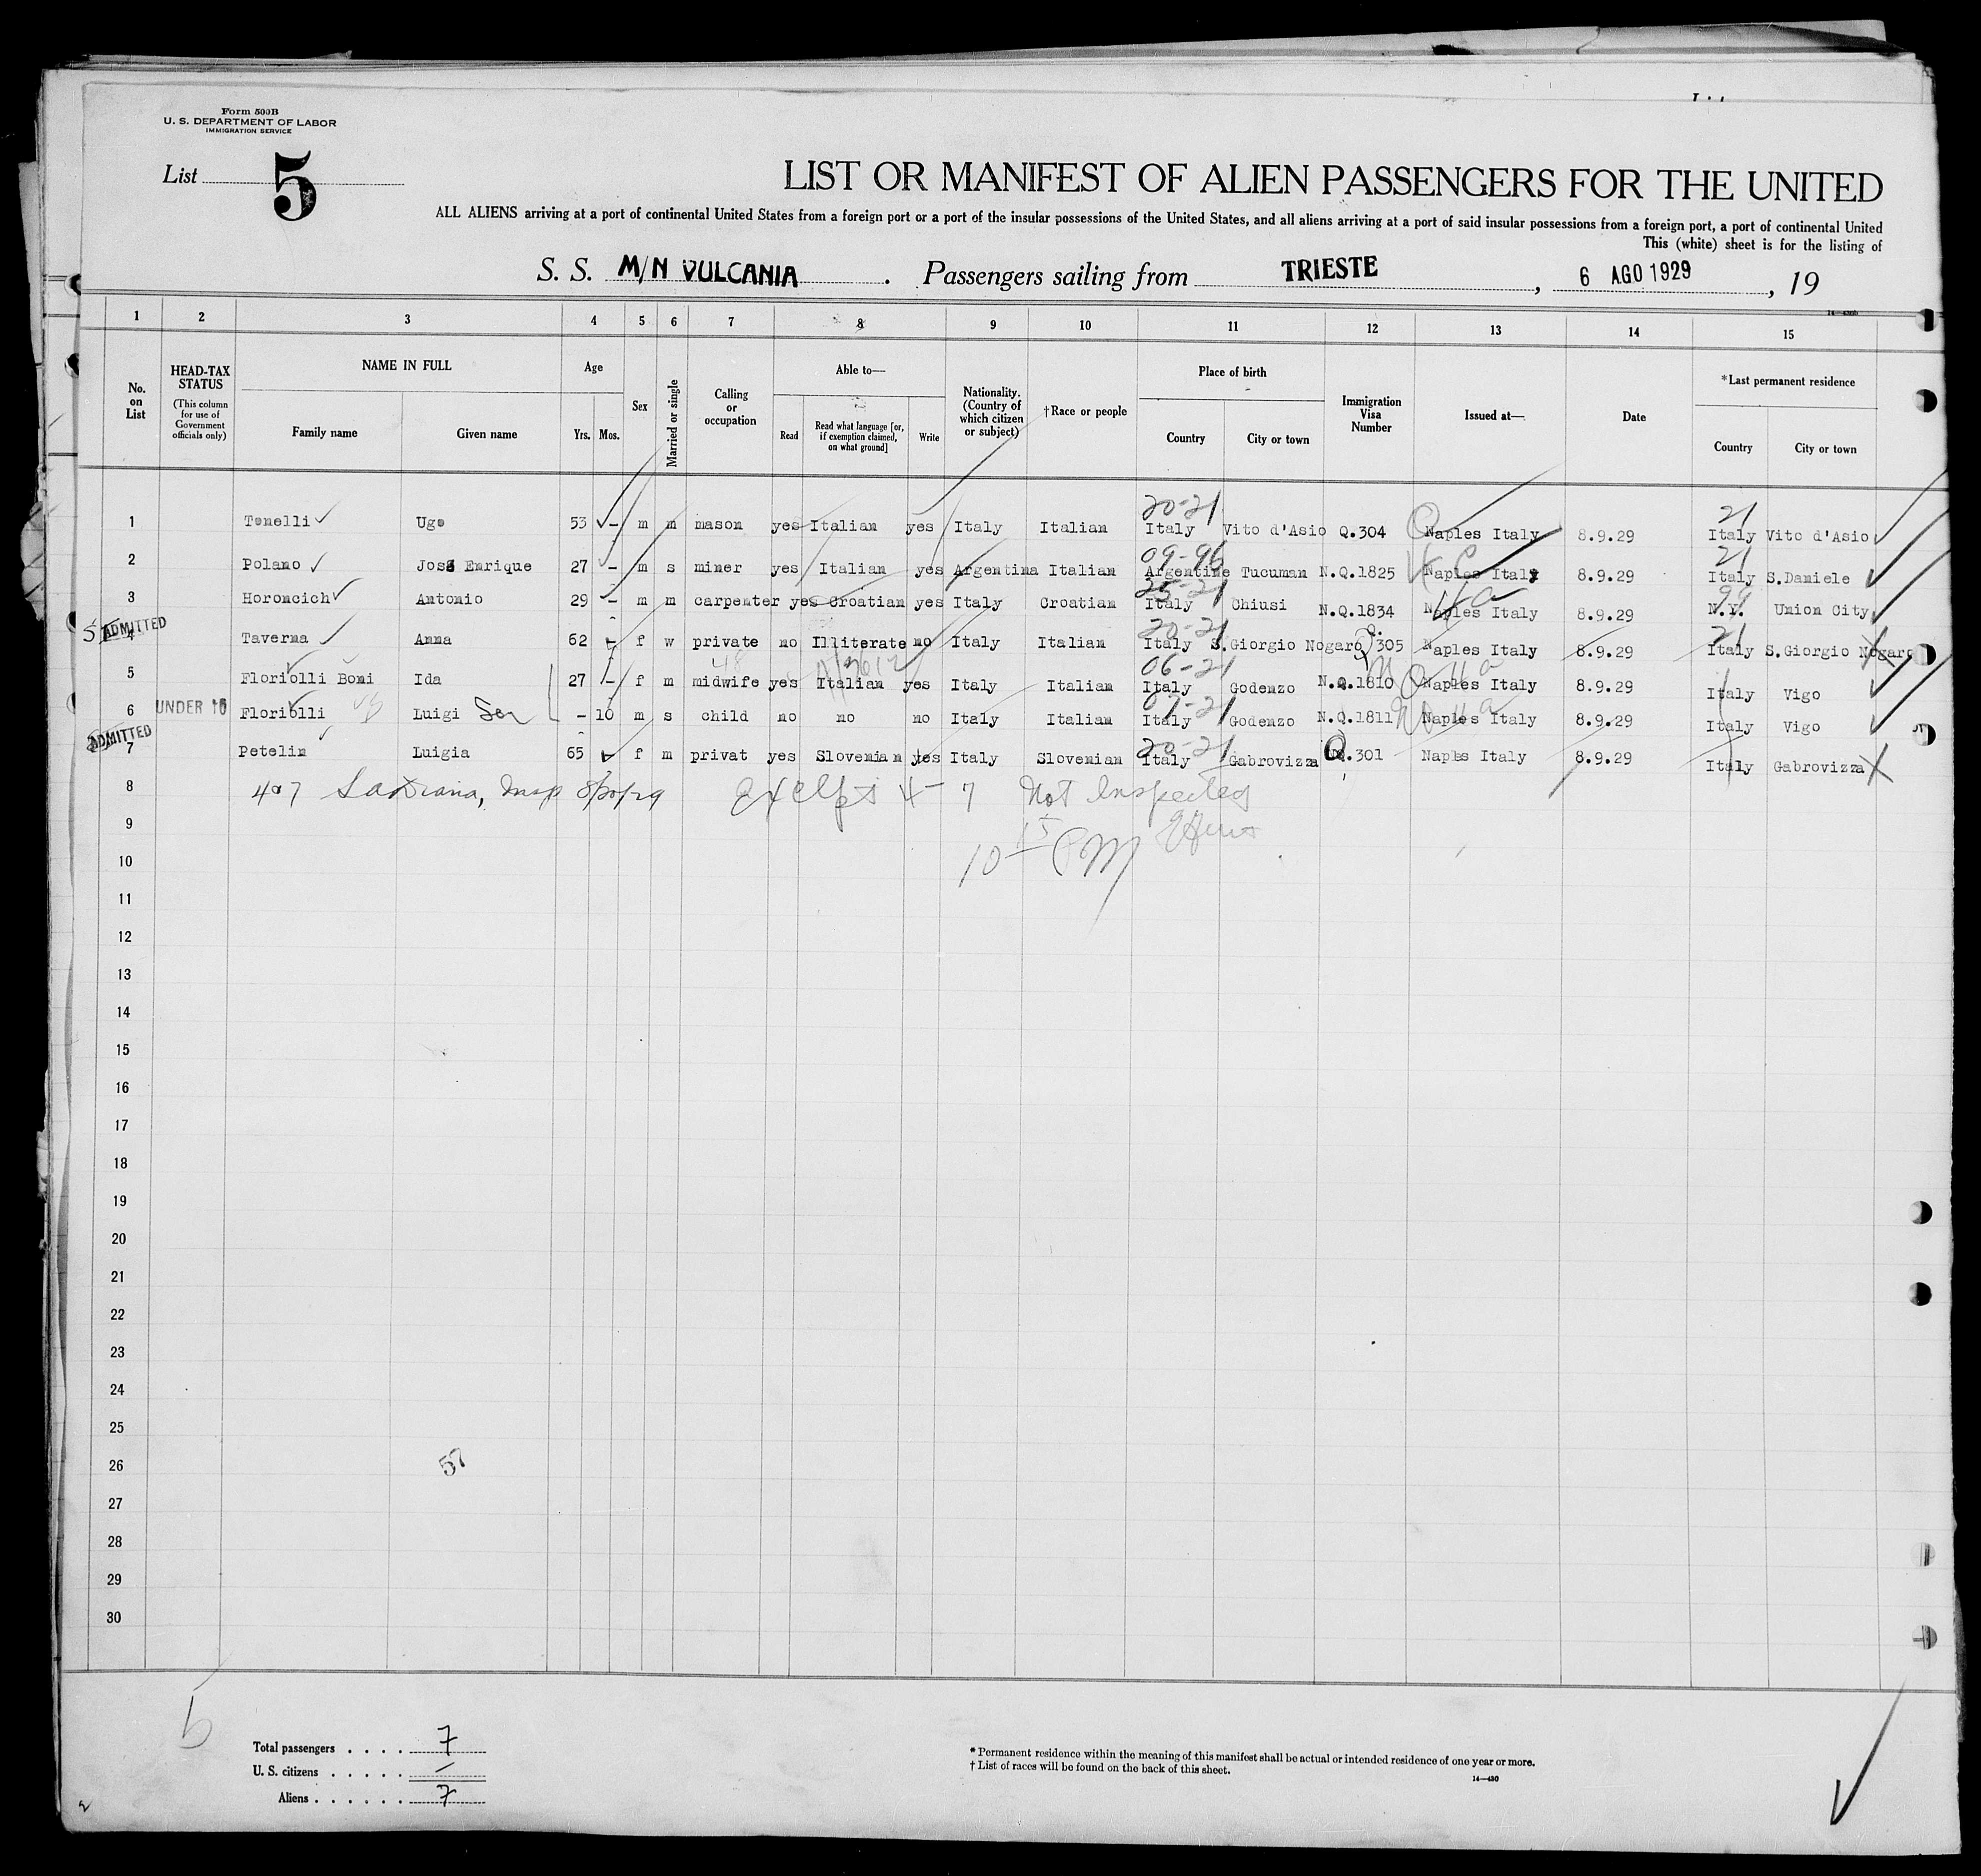 Form 500B
U. S. DEPARTMENT OF LABOR
IMMIGRATION SERVICE
List 5
LIST OR MANIFEST OF ALIEN PASSENGERS FOR THE UNITED
ALL ALIENS arriving at a port of continental United States from a foreign port or a port of the insular possessions of the United States, and all aliens arriving at a port of said insular possessions from a foreign port, a port of continental United
This (white) sheet is for the listing of
S. S. M/N VULCANIA. Passengers sailing from TRIESTE, 6 AGO 1929, 19
1 2 3 4 5 6 7 8 9 10 11 12 13 14 15
No. on List
HEAD-TAX STATUS (This column for use of Government officials only)
NAME IN FULL
Family name Given name
Age
Yrs. Mos.
Sex
Married or single
Calling or occupation
Able to—
Read Read what language [or, if exemption claimed, on what ground] Write
Nationality. (Country of which citizen or subject)
†Race or people
Place of birth
Country City or town
Immigration Visa Number
Issued at—
Date
*Last permanent residence
Country City or town
20-21 21
1 Tonelli Ugo 53 – m m mason yes Italian yes Italy Italian Italy Vito d'Asio Q.304 Naples Italy 8.9.29 Italy Vito d'Asio
09-96 21
2 Polano José Enrique 27 – m s miner yes Italian yes Argentina Italian Argentine Tucuman N.Q.1825 Naples Italy 8.9.29 Italy S.Daniele
25-21 99
3 Horoncich Antonio 29 – m m carpenter yes Croatian yes Italy Croatian Italy Chiusi N.Q.1834 Naples Italy 8.9.29 N.Y. Union City
ADMITTED 20-21 21
4 Taverna Anna 62 – f w private no Illiterate no Italy Italian Italy S.Giorgio Nogaro Q.305 Naples Italy 8.9.29 Italy S.Giorgio Nogaro
06-21
5 Floriolli Boni Ida 27 – f m midwife yes Italian yes Italy Italian Italy Godenzo N.Q.1810 Naples Italy 8.9.29 Italy Vigo
07-21
6 UNDER 16 Floriolli Luigi Son – 10 m s child no no no Italy Italian Italy Godenzo N.Q.1811 Naples Italy 8.9.29 Italy Vigo
ADMITTED 20-21
7 Petelin Luigia 65 – f m privat yes Slovenian yes Italy Slovenian Italy Gabrovizza Q.301 Naples Italy 8.9.29 Italy Gabrovizza
8 4 & 7 Insp 8/20/29 Except 4-7 Not Inspected
9
10 10 15 PM
11
12
13
14
15
16
17
18
19
20
21
22
23
24
25
26 57
27
28
29
30
Total passengers . . . . 7
U. S. citizens . . . . . –
Aliens . . . . . . 7
* Permanent residence within the meaning of this manifest shall be actual or intended residence of one year or more.
† List of races will be found on the back of this sheet.
14—430